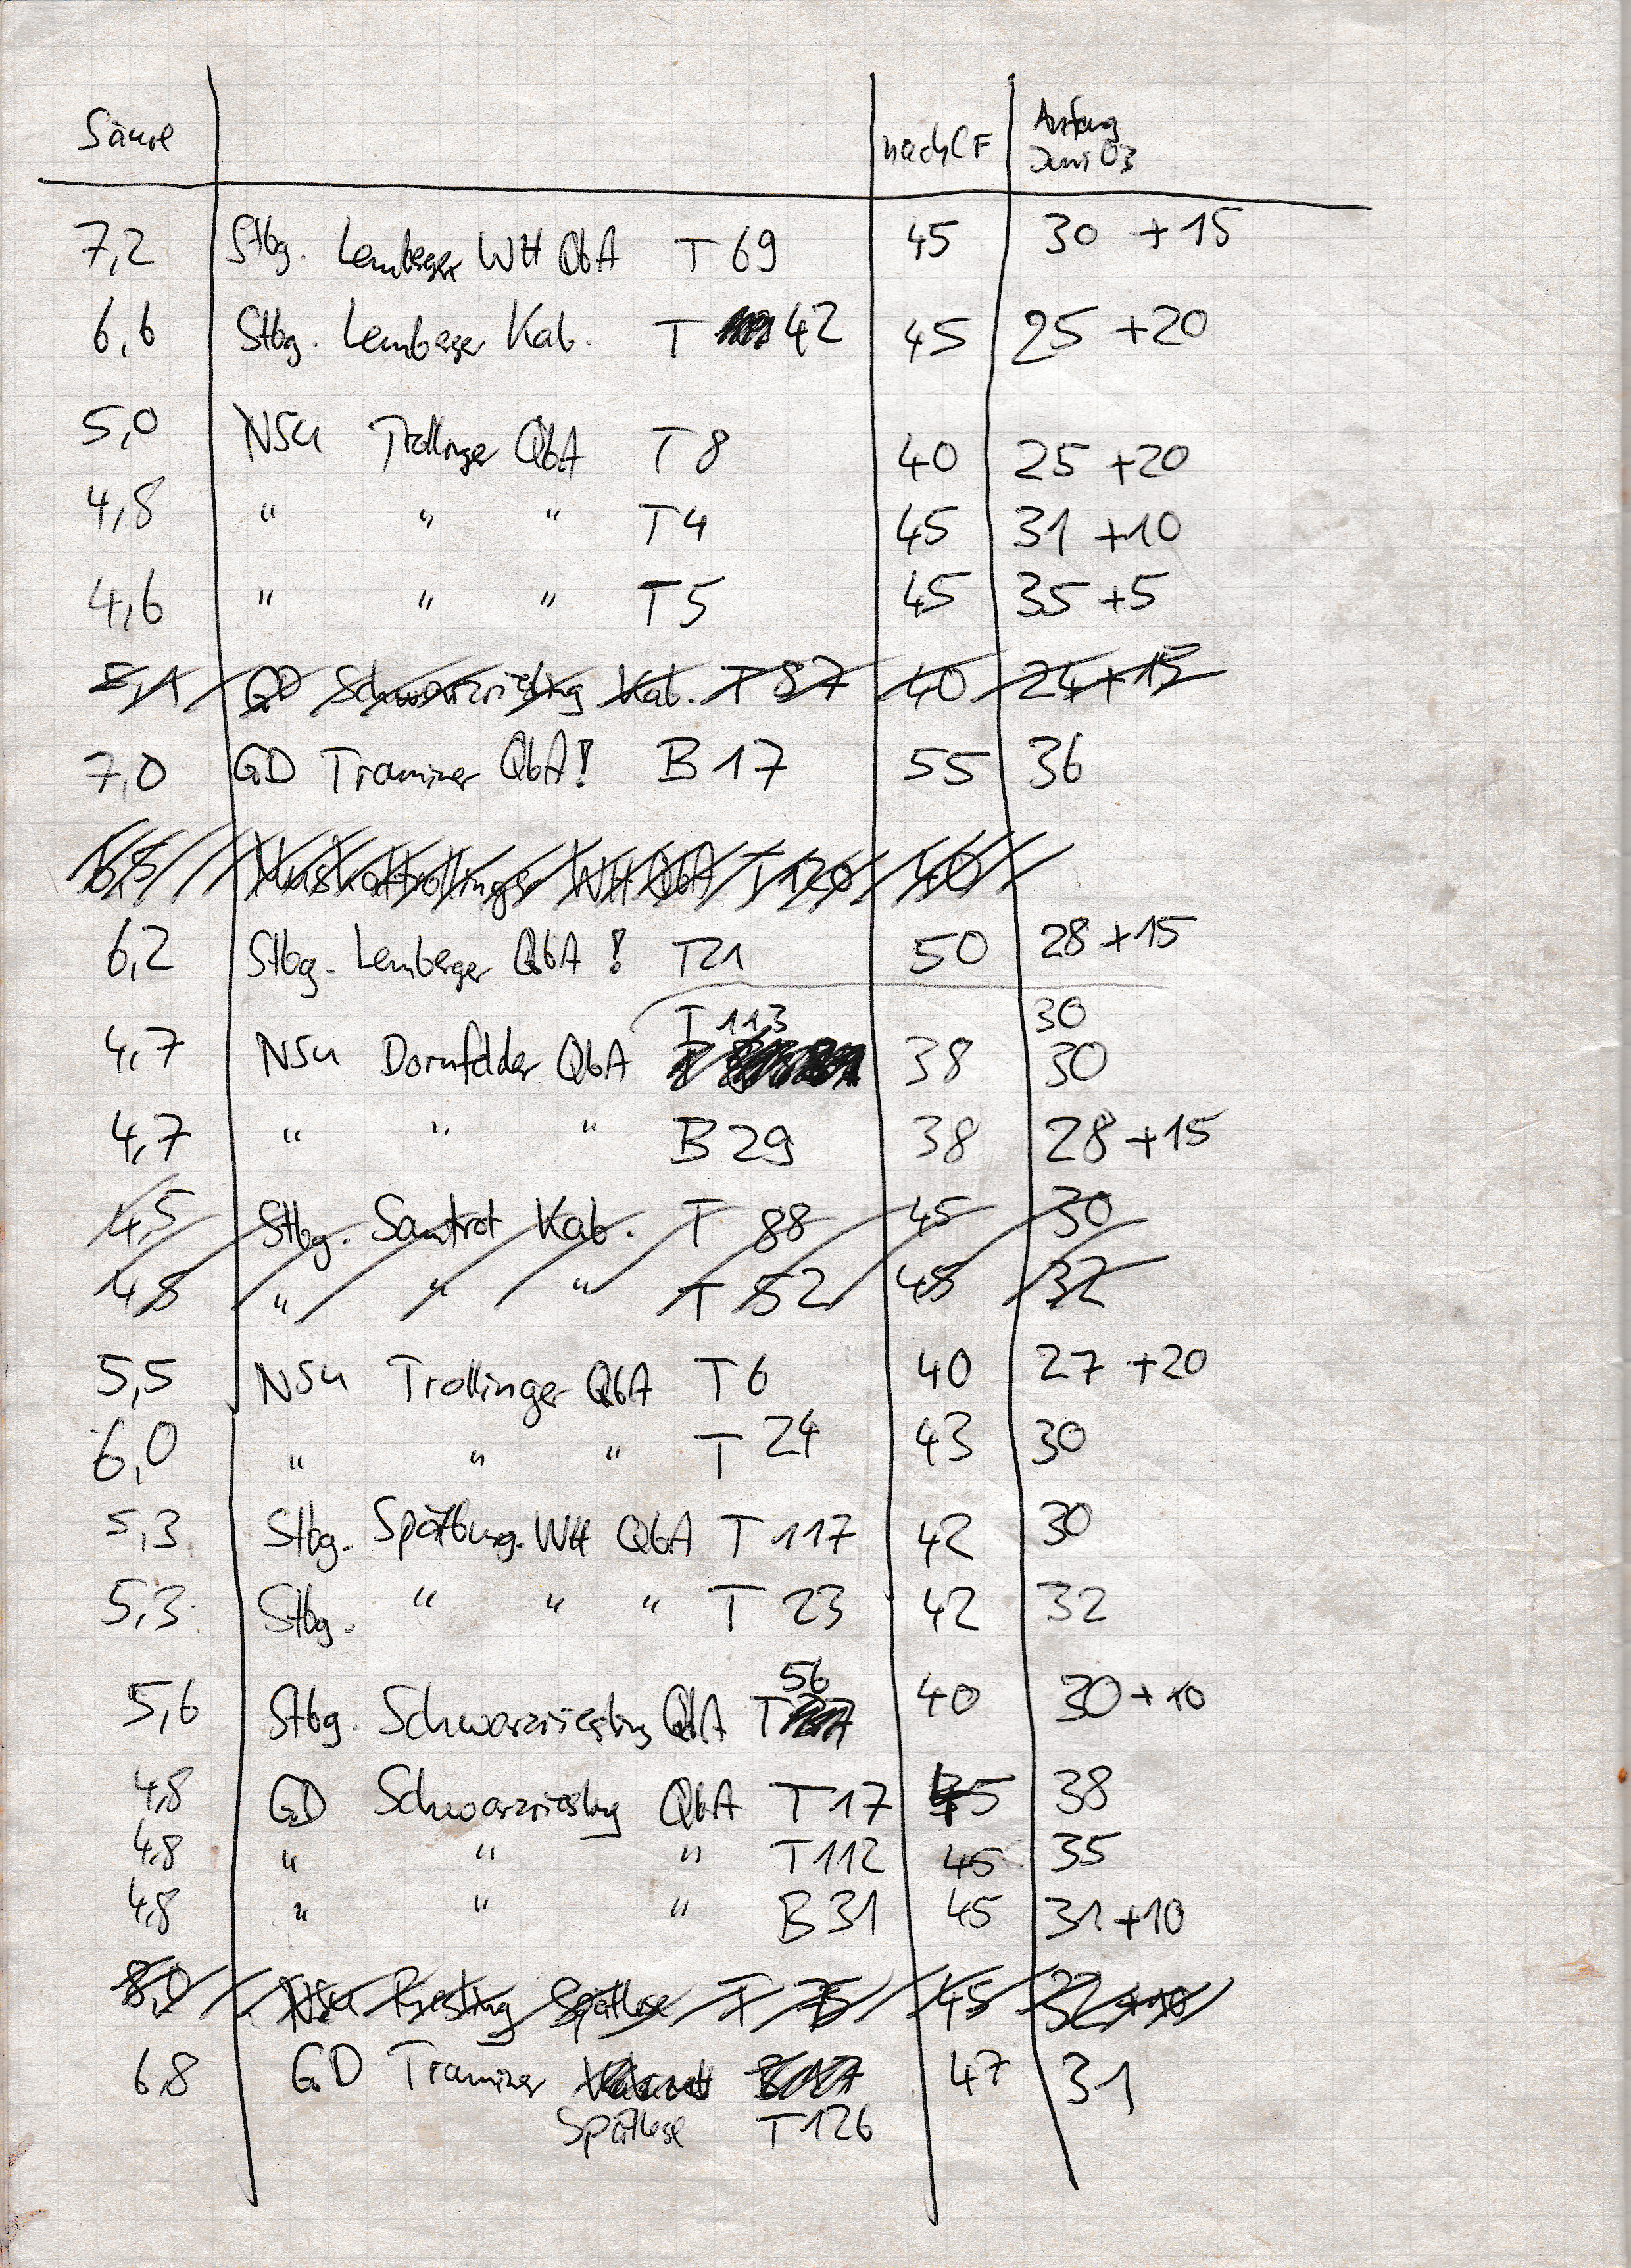 Säure nach CF Anfang
Juni 03
7,2 Stbg. Lemberger WH QbA T 69 45 30 +15
6,6 Stbg. Lemberger Kab. T 42 45 25 +20
5,0 NSU Trollinger QbA T 8 40 25 +20
4,8 " " " T 4 45 31 +10
4,6 " " " T 5 45 35 +5
5,1 GD Schwarzriesling Kab. T 87 40 24 + 15
7,0 GD Traminer QbA! B 17 55 36
6,5 Muskattrollinger WH QbA T 120 40
6,2 Stbg. Lemberger QbA ! T21 50 28 +15
T 113 30
4,7 NSU Dornfelder QbA 38 30
4,7 " " " B 29 38 28 +15
4,5 Stbg. Samtrot Kab. T 88 45 30
4,8 " " " T 52 45 32
5,5 NSU Trollinger QbA T 6 40 27 +20
6,0 " " " T 24 43 30
5,3 Stbg. Spätburg. WH QbA T 117 42 30
5,3 Stbg. " " " T 23 42 32
56
5,6 Stbg. Schwarzriesling QbA T 40 30 + 10
4,8 GD Schwarzriesling QbA T 17 45 38
4,8 " " " T 112 45 35
4,8 " " " B 31 45 31 +10
8,0 NSU Riesling Spätlese T 75 45 32 +10
6,8 GD Traminer 47 31
Spätlese T 126